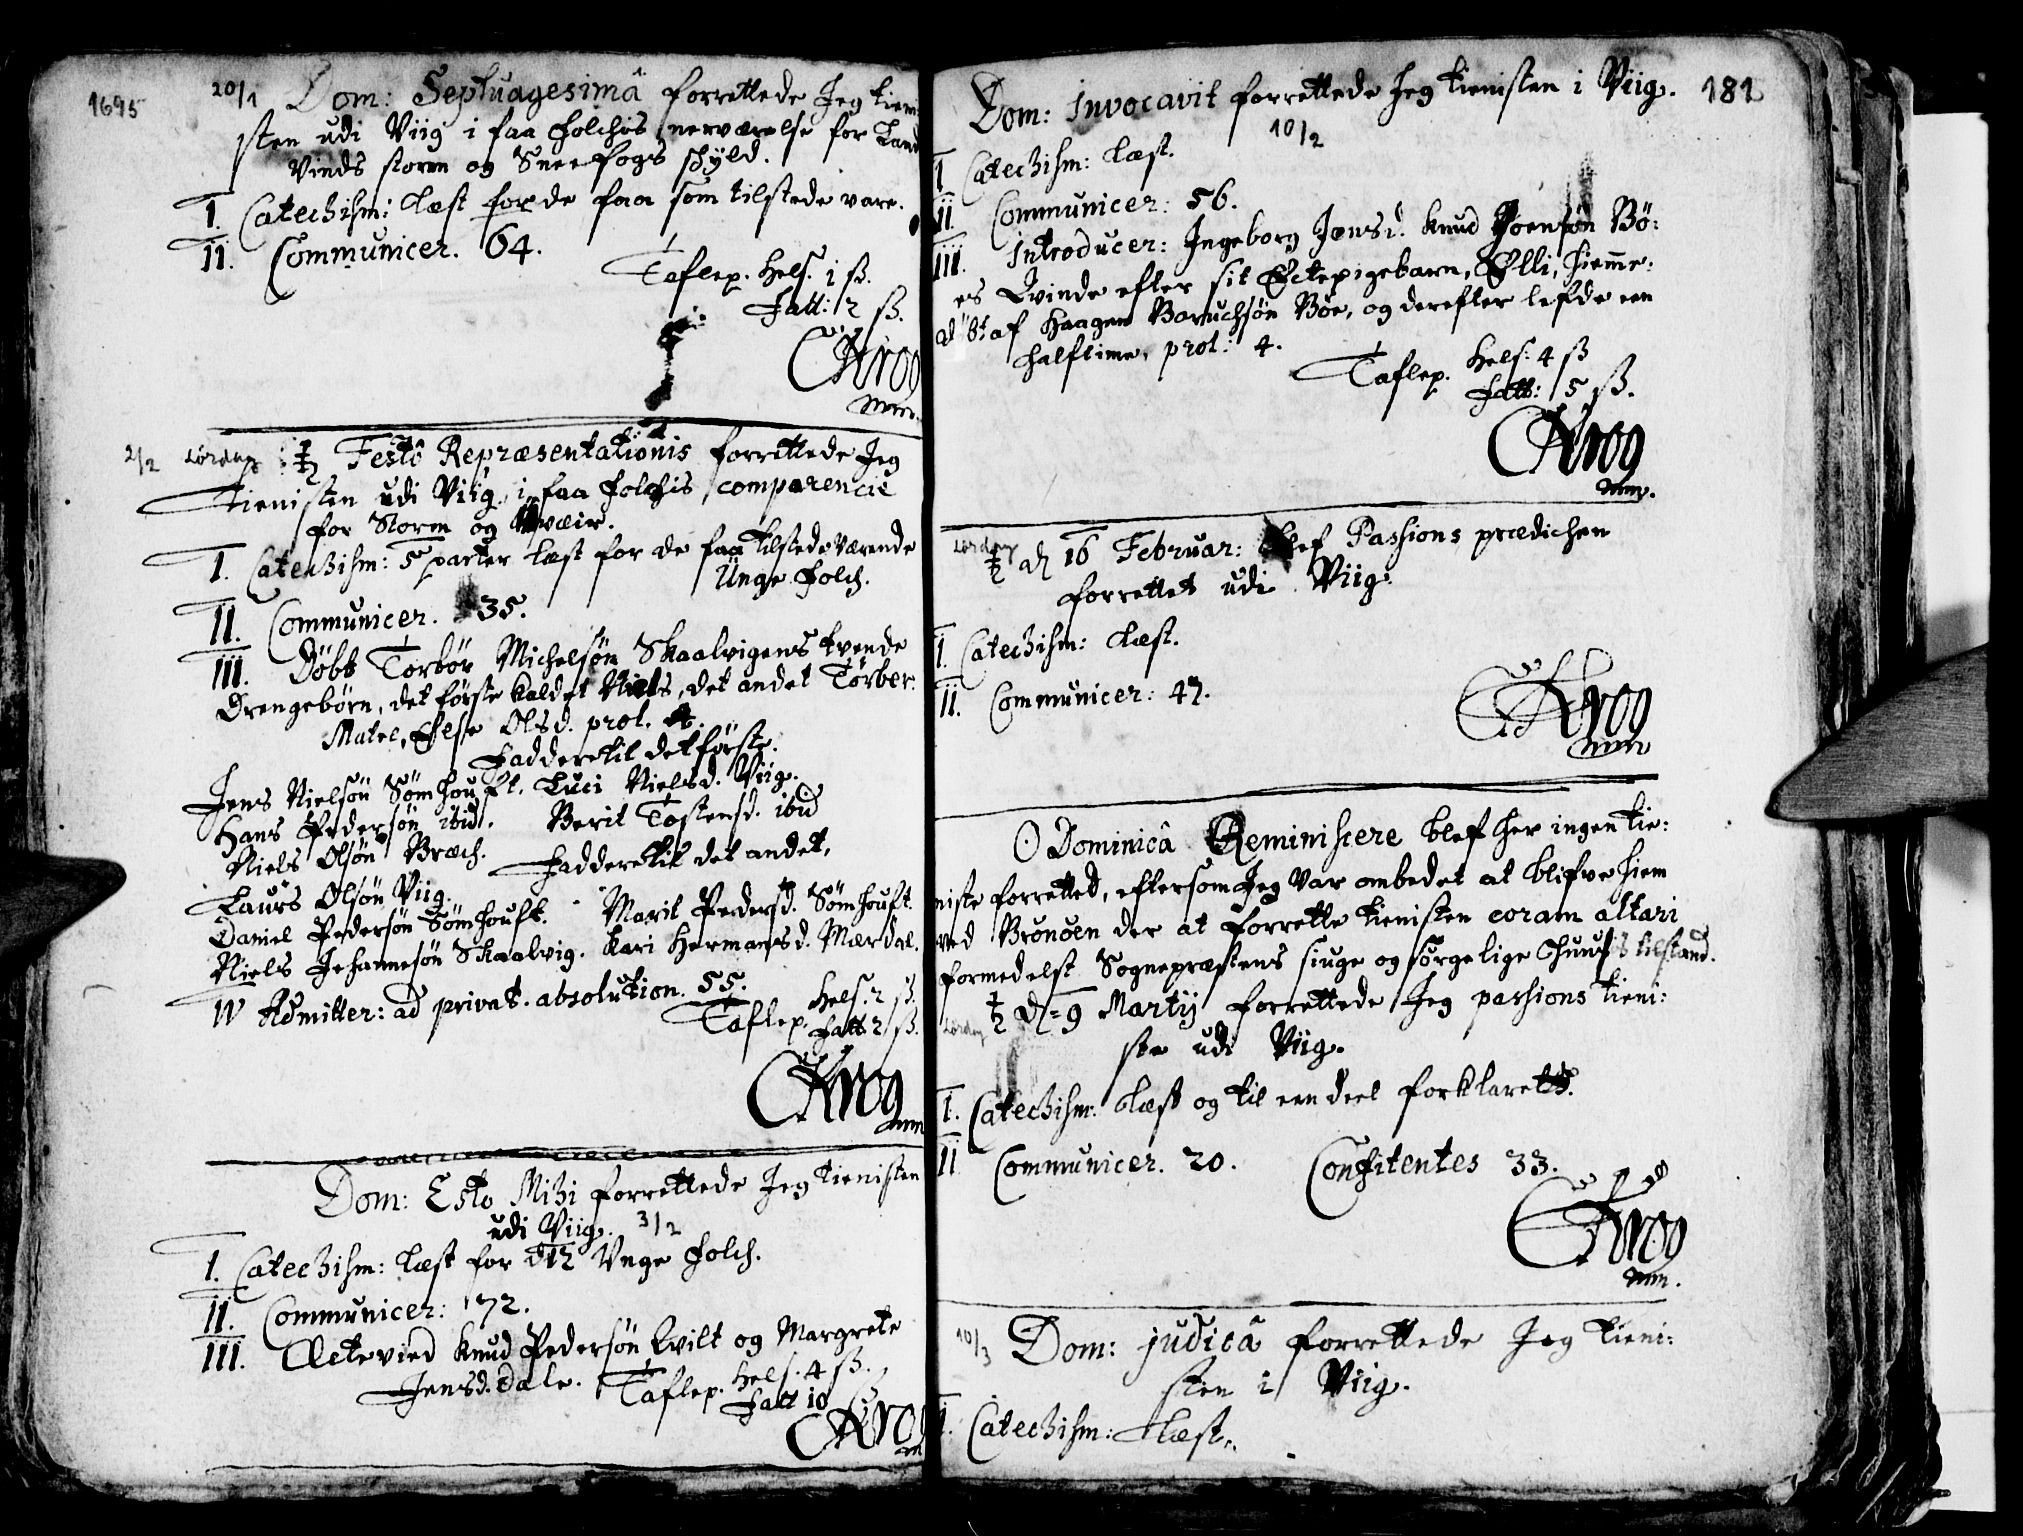 1695
20/1 Dom: Septuagesimâ forrettede Jeg tien
sten udi Viig i faa folchis nerværelse for Land
Vinds storm og Sneefogs skyld.
I. Catechism: læst for de faa som tilstede vare.
II. Communicer. 64.
Taflep. Hels. 1 ß.
Fatt: 2 ß.
CKrog
mm.
2/2 Lørdag ♄ Festô Repræsentationis forrettede Jeg
Tienisten udi Viig, i faa folchis comparencie
for Storm og Uvæir.
I. Catechism: 5 parter læst for de faa tilstedeværende
Unge folch.
II. Communicer. 35.
III. Döbt Torbör Michelsön Skaalvigens tvende
Drengebörn, det förste kaldet Niels, det andet Törber.
Matel, Else Olsd. prol. 4.
Faddere til det förste.
Jens Nielsön Sömhouft. Luci Nielsd. Viig.
Hans Pedersön ibid. Berit Tostensd. ibid
Niels Olsön Bræch.
Faddere til det andet,
Laurs Olsön Viig.
Daniel Pedersön Sömhouft. Marit Pedersd. Sömhouft.
Niels Johannesön Skaalvig. Kari Hermansd. Mærdal.
IV Admitter: ad privat. absolution. 55.
Taflep. Hels. 2 ß.
Fatt 2 ß.
CKrog
mm
Dom: Esto Mihi forrettede Jeg tienisten
udi Viig. 3/2
I. Catechism: læst for det Unge folch.
II. Communicer: 72.
III. Ectevied Knud Pedersön Qvilt og Margrete
Jensd. Dale. Taflep. Hels. 4 ß.
Fatt 10 ß
CKrog
m
181
Dom: Invocavit forrettede Jeg tienisten i Viig.
10/2
I Catechism: læst.
II Communicer: 56.
III. Introducer: Ingeborg Jonsd. Knud Joensön Bö:
es Qvinde efter sit Ectepigebarn, Elli, hiemme:
döbt af Haagen Baruchsön Böe, og derefter lefde een
halftime, prol: 4.
Taflep. Hels: 4 ß
Fatt: 5 ß.
CKrog
mm.
Lørdag
♄ d 16 Februar: blef Passions prædichen
forrettet udi Viig.
I. Catechism: læst.
II. Communicer: 47.
CKrog
mm
☉ Dominicâ Reminiscere blef her ingen tie:
niste forretted, eftersom Jeg var ombedet at blifve hiem
ved Brönöen der at forrette tienisten coram altari
formedelst Sognepræstens siuge og sörgelige Huusis tilstand.
Lørdag ♄ d= 9 Martij forrettede Jeg passions tieni:
ste udi Viig.
I. Catechism: læst og til een deel forklaret.
II Communicer. 20. Confitentes 33.
CKrog
mm.
10/3 Dom: judicâ forrettede Jeg tieni:
sten i Viig.
I. Catechism: læst.